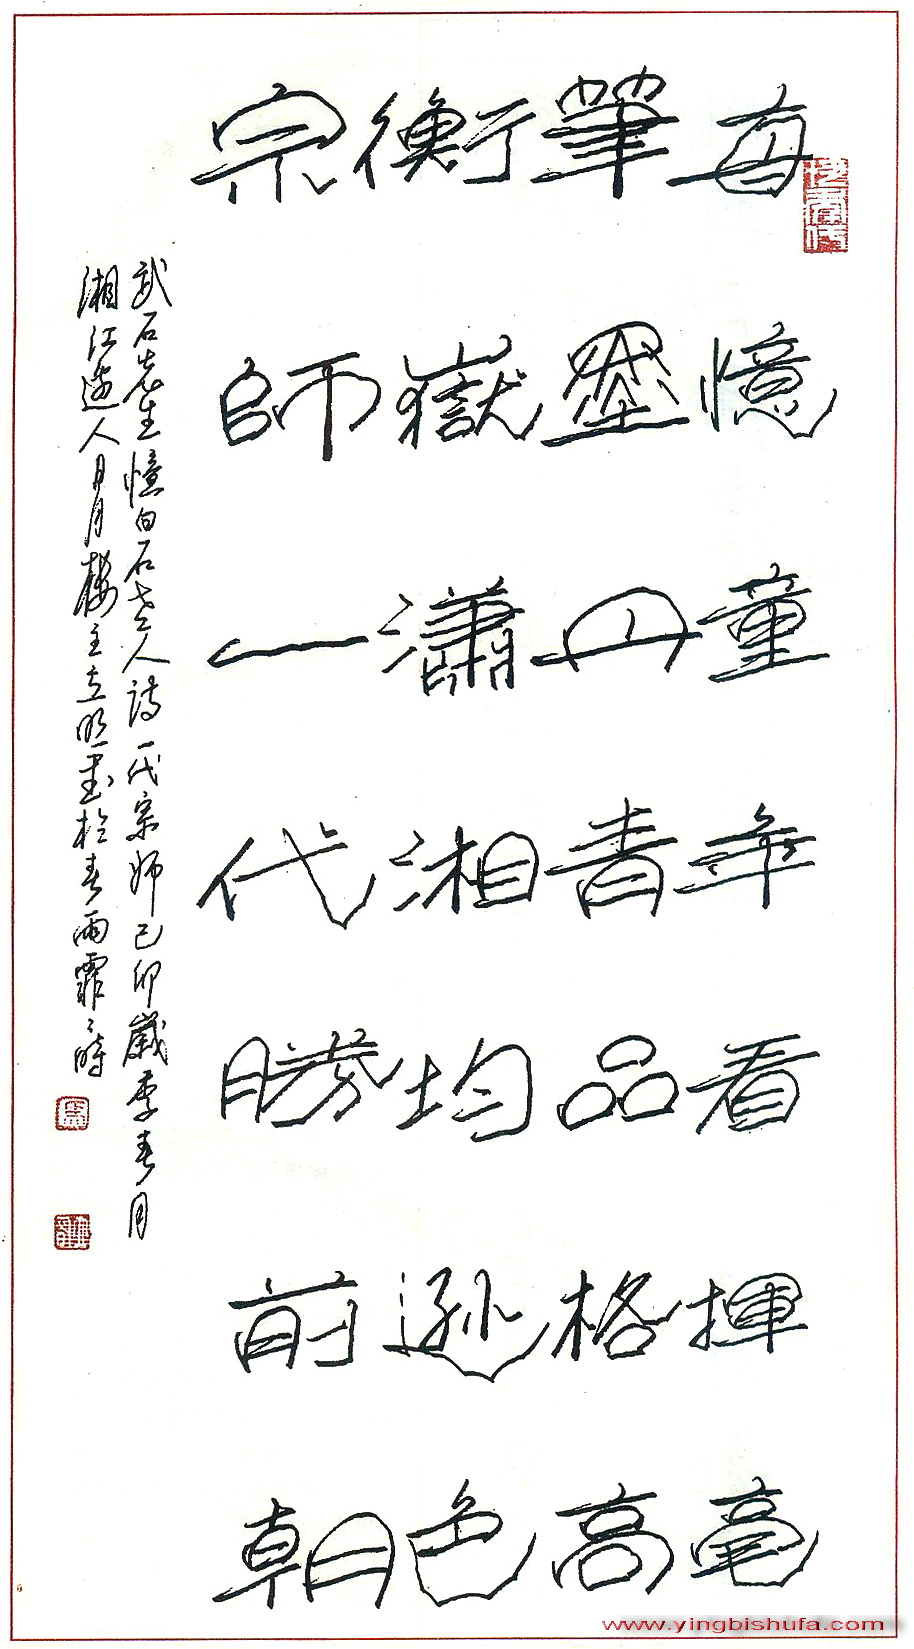 每憶童年看揮毫
筆墨丹青品格高
衡嶽瀟湘均遜色
宗師一代勝前朝
武石先生憶白石老人詩一代宗师己卯歲季春月
湘江造人月樓主立明書於春雨霏〻時
www.yingbishufa.com